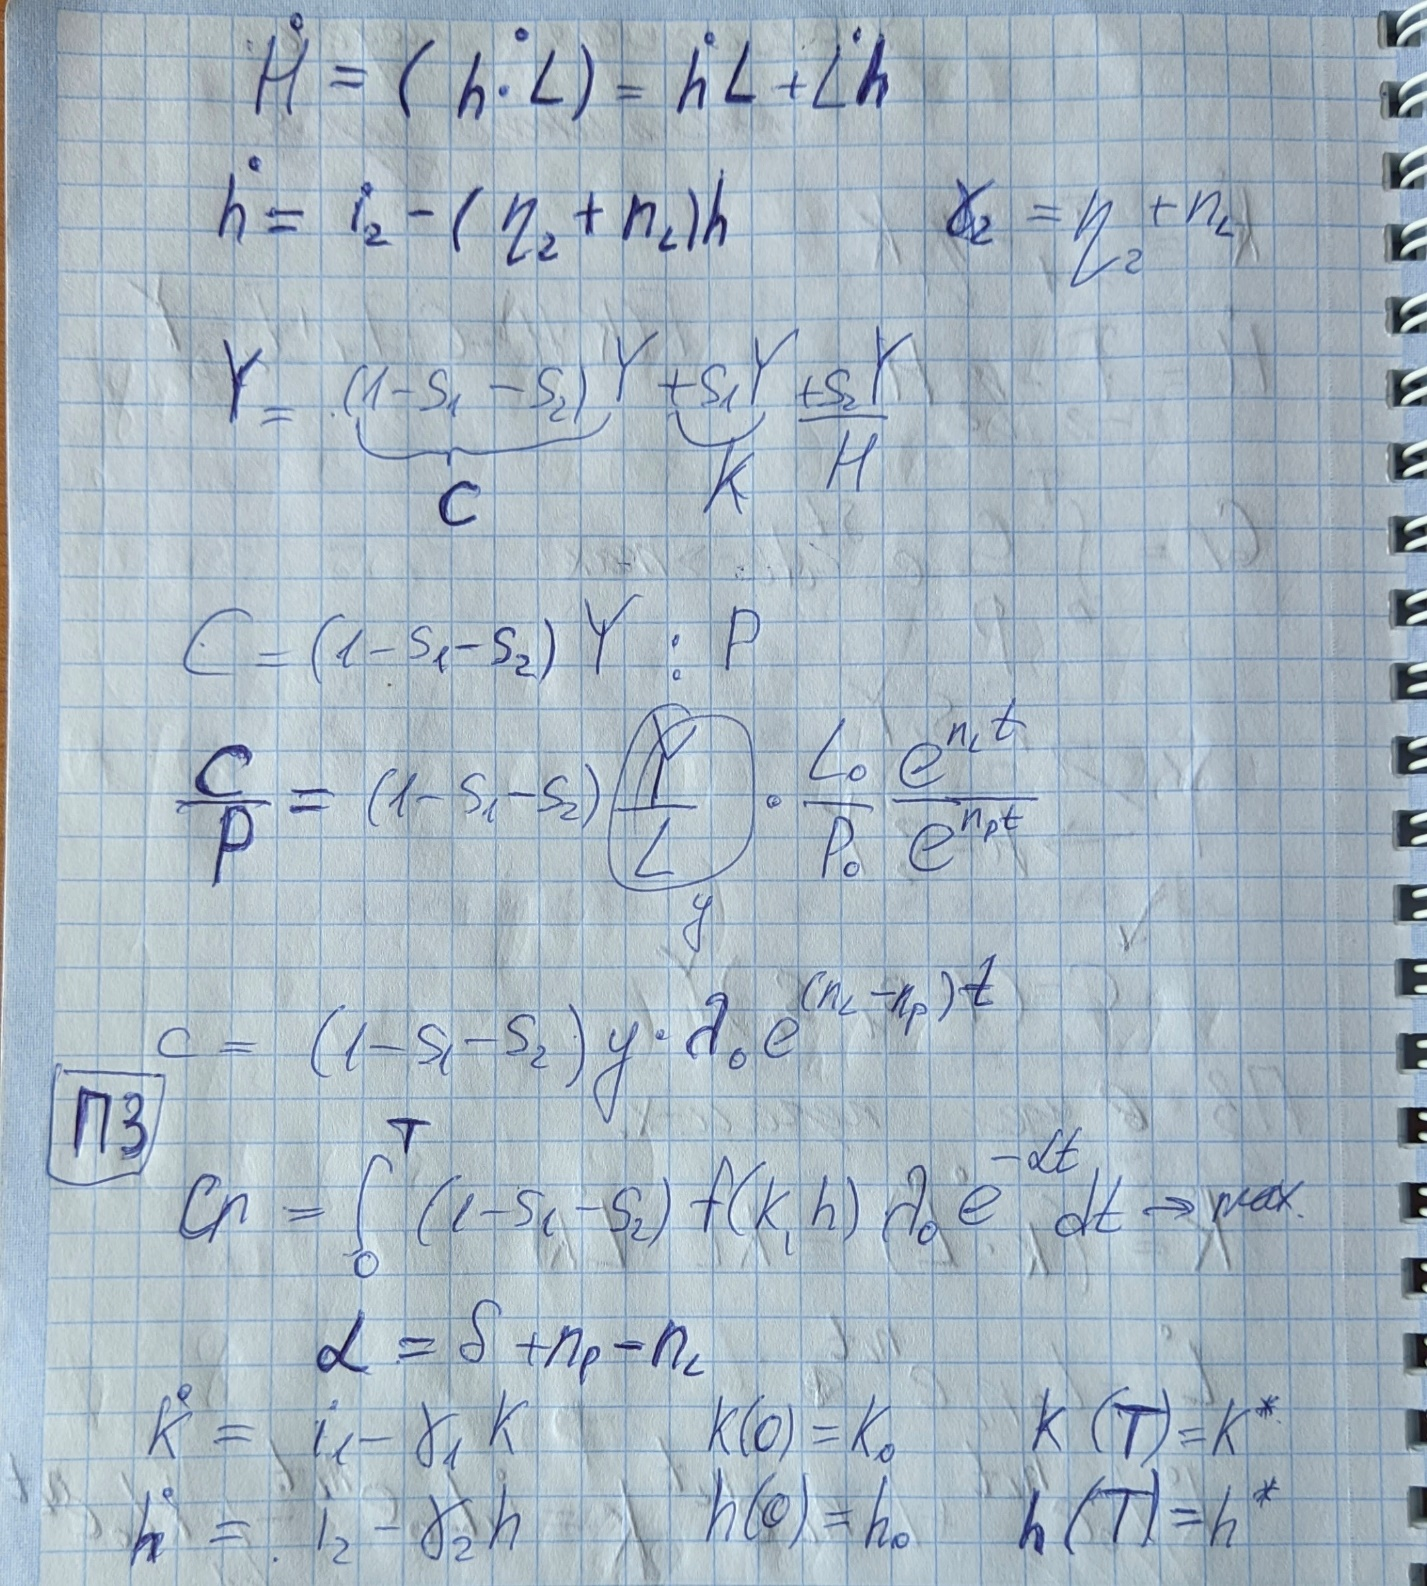 Ḣ = (h·L)˙ = ḣL + L̇h
ḣ = i₂ - (η₂ + n_L)h    γ₂ = η₂ + n_L
Y = (1-S₁-S₂)Y + S₁Y + S₂Y
C    K    H
C = (1-S₁-S₂)Y : P
C/P = (1-S₁-S₂) Y/L · L₀/P₀ e^(n_L t)/e^(n_p t)
y
c = (1-S₁-S₂) y·λ₀e^((n_L-n_p)t)
ПЗ
Cп = ∫₀ᵀ (1-S₁-S₂) f(k, h) λ₀e^(-αt) dt → max.
α = δ + n_p - n_L
k̇ = i₁ - γ₁k    k(0) = k₀    k(T) = k*
ḣ = i₂ - γ₂h    h(0) = h₀    h(T) = h*